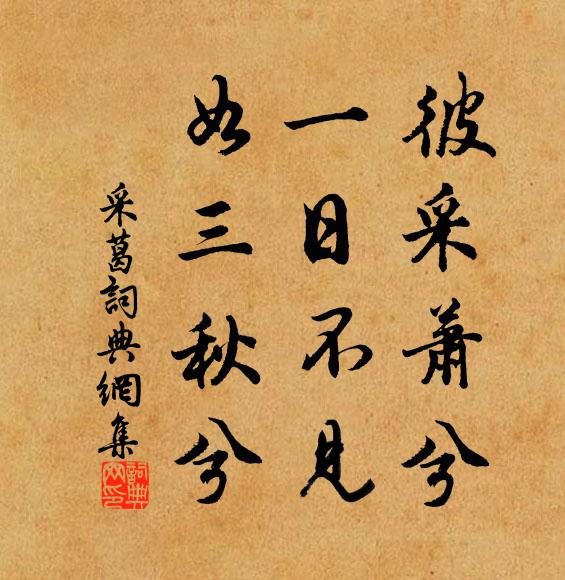 彼采蕭兮
一日不見
如三秋兮
采葛詞典網集
詞典網印